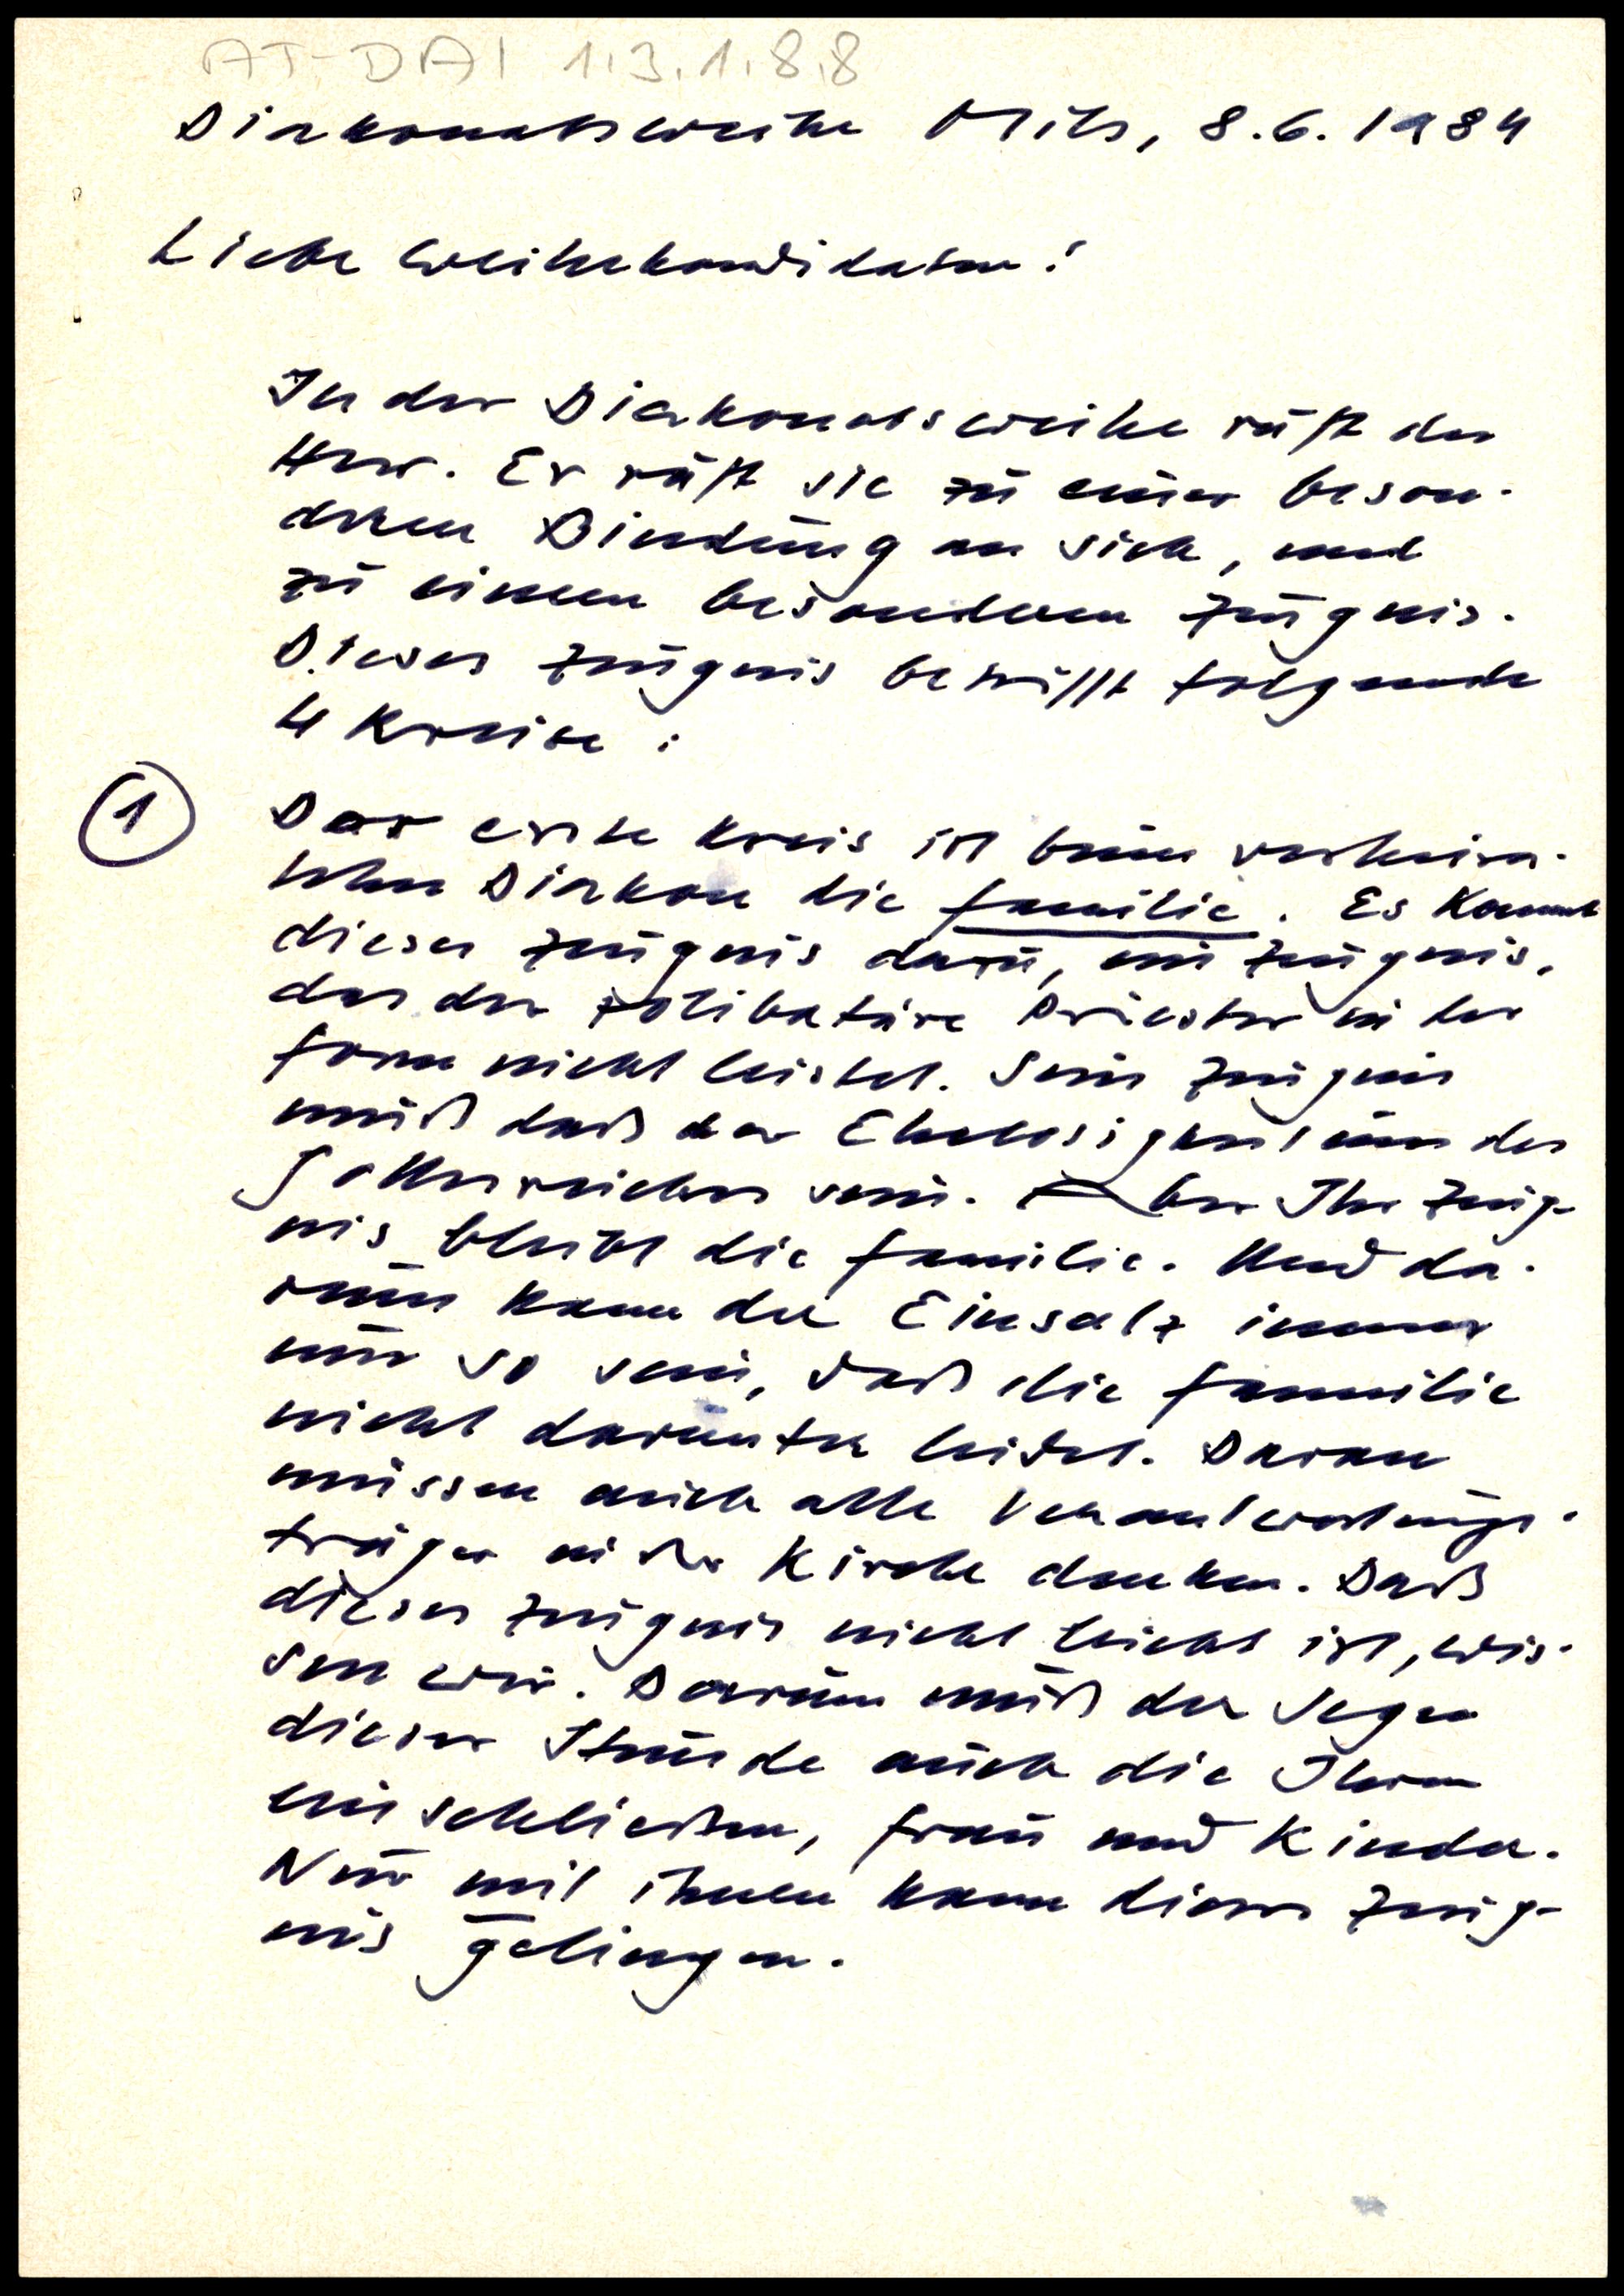 AT-DAI 1.3.1.8.8
Diakonatsweihe Mils, 8.6.1984
Liebe Weihekandidaten!
In der Diakonatsweihe ruft der
Herr. Er ruft sie zu einer beson-
deren Bindung an sich, und
zu einem besonderen Zeugnis.
Dieses Zeugnis betrifft folgende
4 Kreise:
1
Der erste Kreis ist beim verheira-
teten Diakon die Familie. Es kommt
dieses Zeugnis dazu, ein Zeugnis,
das der zölibatäre Priester in der
Form nicht leistet. Sein Zeugnis
muß daß der Ehelosigkeit um des
Gottesreiches sein. Ihr Zeug-
nis bleibt die Familie. Und da-
rum kann der Einsatz immer
nur so sein, daß die Familie
nicht darunter leidet. Daran
müssen auch alle Verantwortungs-
träger in der Kirche denken. Daß
dieses Zeugnis nicht leicht ist, wis-
sen wir. Darum muß der Segen
dieser Stunde auch die Ihren
einschließen, Frau und Kinder.
Nur mit ihnen kann dieses Zeug-
nis gelingen.